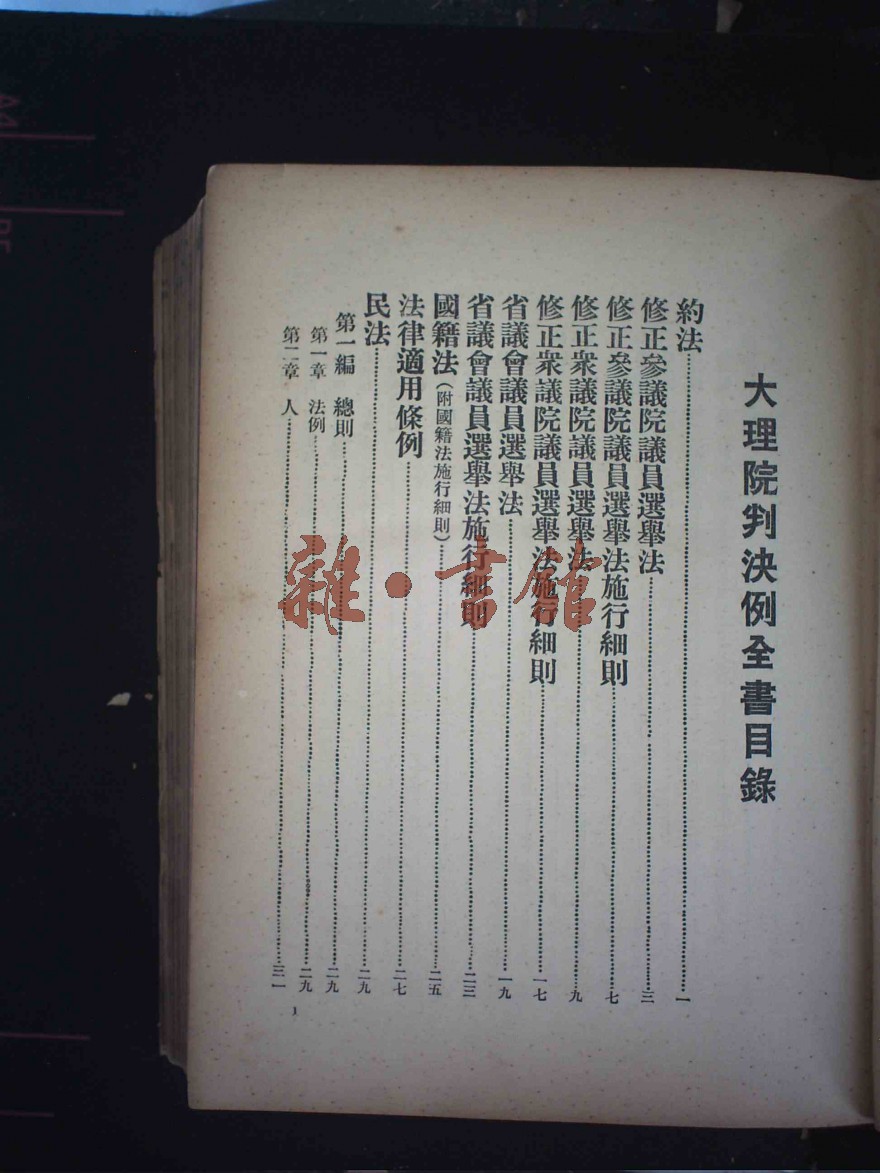 大理院判決例全書目錄
約法……一
修正參議院議員選舉法……三
修正參議院議員選舉法施行細則……七
修正眾議院議員選舉法……九
修正眾議院議員選舉法施行細則……一七
省議會議員選舉法……一九
省議會議員選舉法施行細則……二三
國籍法（附國籍法施行細則）……二五
法律適用條例……二七
民法……二九
第一編 總則……二九
第一章 法例……二九
第二章 人……三一
1
雜·書館